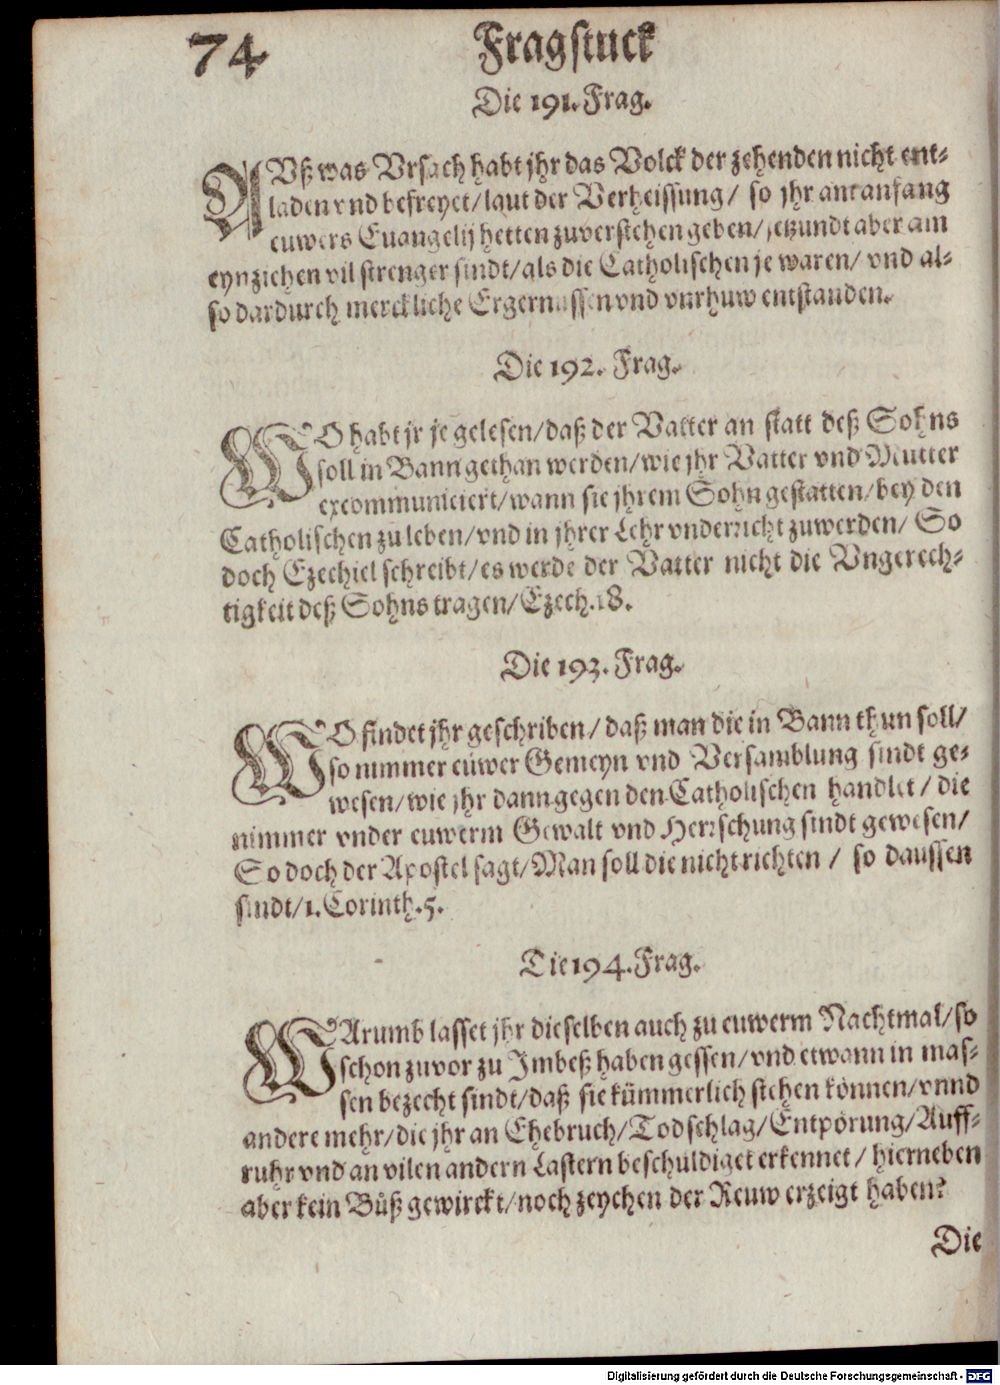 74 Fragstuck
Die 191. Frag.
AVß was Vrsach habt jhr das Volck der zehenden nicht ent-
laden vnd befreyet/ laut der Verheissung/ so jhr am anfang
euwers Euangelij hetten zuverstehen geben/ jetzundt aber am
eynziehen vil strenger sindt/ als die Catholischen je waren/ vnd al-
so dardurch merckliche Ergernussen vnd vnrhuw entstanden.
Die 192. Frag.
WO habt jr je gelesen/ daß der Vatter an statt deß Sohns
soll in Bann gethan werden/ wie jhr Vatter vnd Mutter
excommuniciert/ wann sie jhrem Sohn gestatten/ bey den
Catholischen zu leben/ vnd in jhrer Lehr vnderricht zuwerden/ So
doch Ezechiel schreibt/ es werde der Vatter nicht die Vngerech-
tigkeit deß Sohns tragen/ Ezech. 18.
Die 193. Frag.
WO findet jhr geschriben/ daß man die in Bann thun soll/
so nimmer euwer Gemeyn vnd Versamblung sindt ge-
wesen/ wie jhr dann gegen den Catholischen handlet/ die
nimmer vnder euwerm Gewalt vnd Herrschung sindt gewesen/
So doch der Apostel sagt/ Man soll die nicht richten/ so daussen
sindt/ 1. Corinth. 5.
Die 194. Frag.
WArumb lasset jhr dieselben auch zu euwerm Nachtmal/ so
schon zuvor zu Imbeß haben gessen/ vnd etwann in mas-
sen bezecht sindt/ daß sie kümmerlich stehen können/ vnnd
andere mehr/ die jhr an Ehebruch/ Todschlag/ Entpörung/ Auff-
ruhr vnd an vilen andern Lastern beschuldiget erkennet/ hierneben
aber kein Büß gewirckt/ noch zeychen der Reuw erzeigt haben?
Die
Digitalisierung gefördert durch die Deutsche Forschungsgemeinschaft - DFG